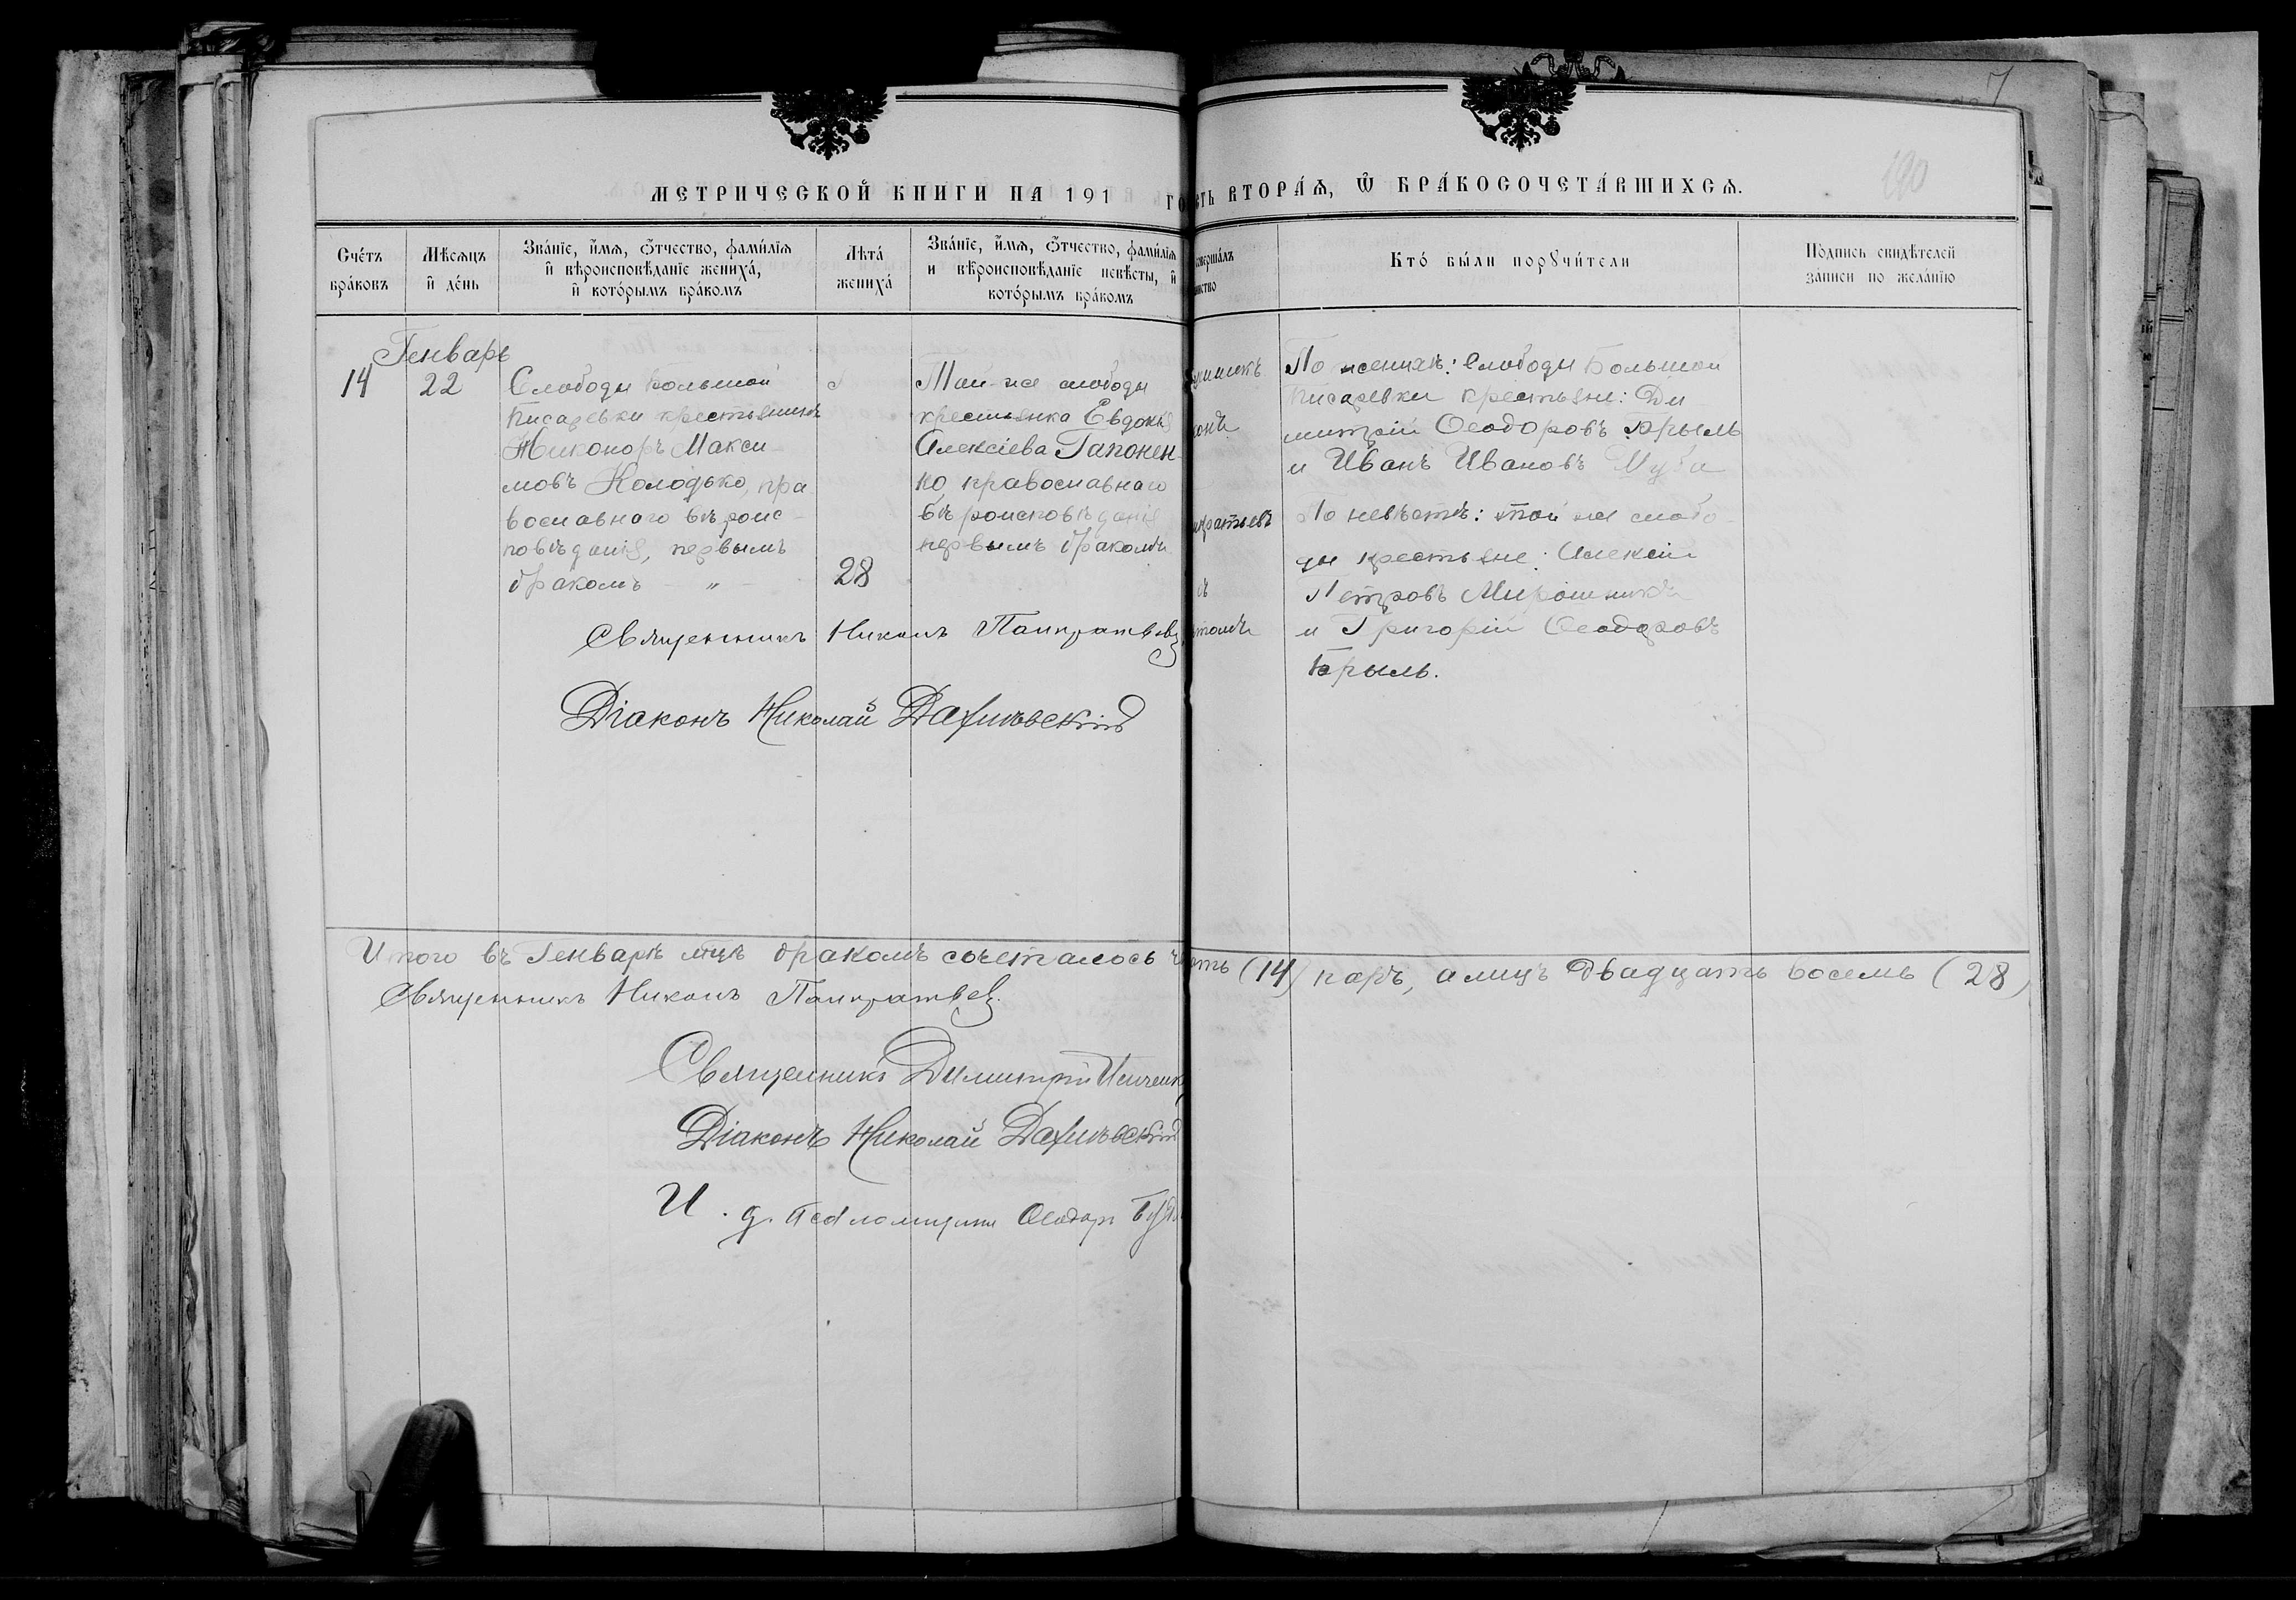 7
190
МЕТРИЧЕСКОЙ КНИГИ НА 191 ГО
СТЬ ВТОРА́Ѧ, Ѿ БРА́КОСОЧЕТА́ВШИХСѦ.
Сче́тъ бра́ковъ
Мѣ́сяцъ и҆ де́нь
Зва́нїе, и҆́мѧ, ѻ҆́тчество, фами́лїѧ и҆ вѣроисповѣ́данїе жениха́, и҆ кото́рымъ бра́комъ
Лѣта́ жениха́
Зва́нїе, и҆́мѧ, ѻ҆́тчество, фами́лїѧ и вѣроисповѣ́данїе невѣ́сты, и҆ кото́рымъ бра́комъ
совершалъ
инство
Кто́ бы́ли порꙋчи́тели
По́дпись свидѣ́телей за́писи по жела́нїю
Генварь
14
22
Слободы Большой
Писаревки крестьянинъ
Никоноръ Макси-
мовъ Колодько, пра-
вославнаго вѣроис-
повѣданія, первымъ
бракомъ - " -
28
Той-же слободы
крестьянка Евдокія
Алексіева Гапонен-
ко, православнаго
вѣроисповѣданія
первымъ бракомъ
кратьевъ
По женихѣ: слободы Большой
Писаревки крестьяне: Ди-
митрій Ѳеодоровъ Брыль
и Иванъ Ивановъ
По невѣстѣ: той же слобо-
ды крестьяне: Алексій
Петровъ Мирошникъ
и Григорій Ѳеодоровъ
Брыль.
Священникъ Никонъ Панкратьевъ
Діаконъ Николай
Итого въ Генварѣ мцѣ бракомъ сочеталось
ть (14) паръ, а лицъ двадцать восемь (28)
Священникъ Никонъ Панкратьевъ.
Священникъ Димитрій
Діаконъ Николай
И. д. псаломщика Ѳеодоръ